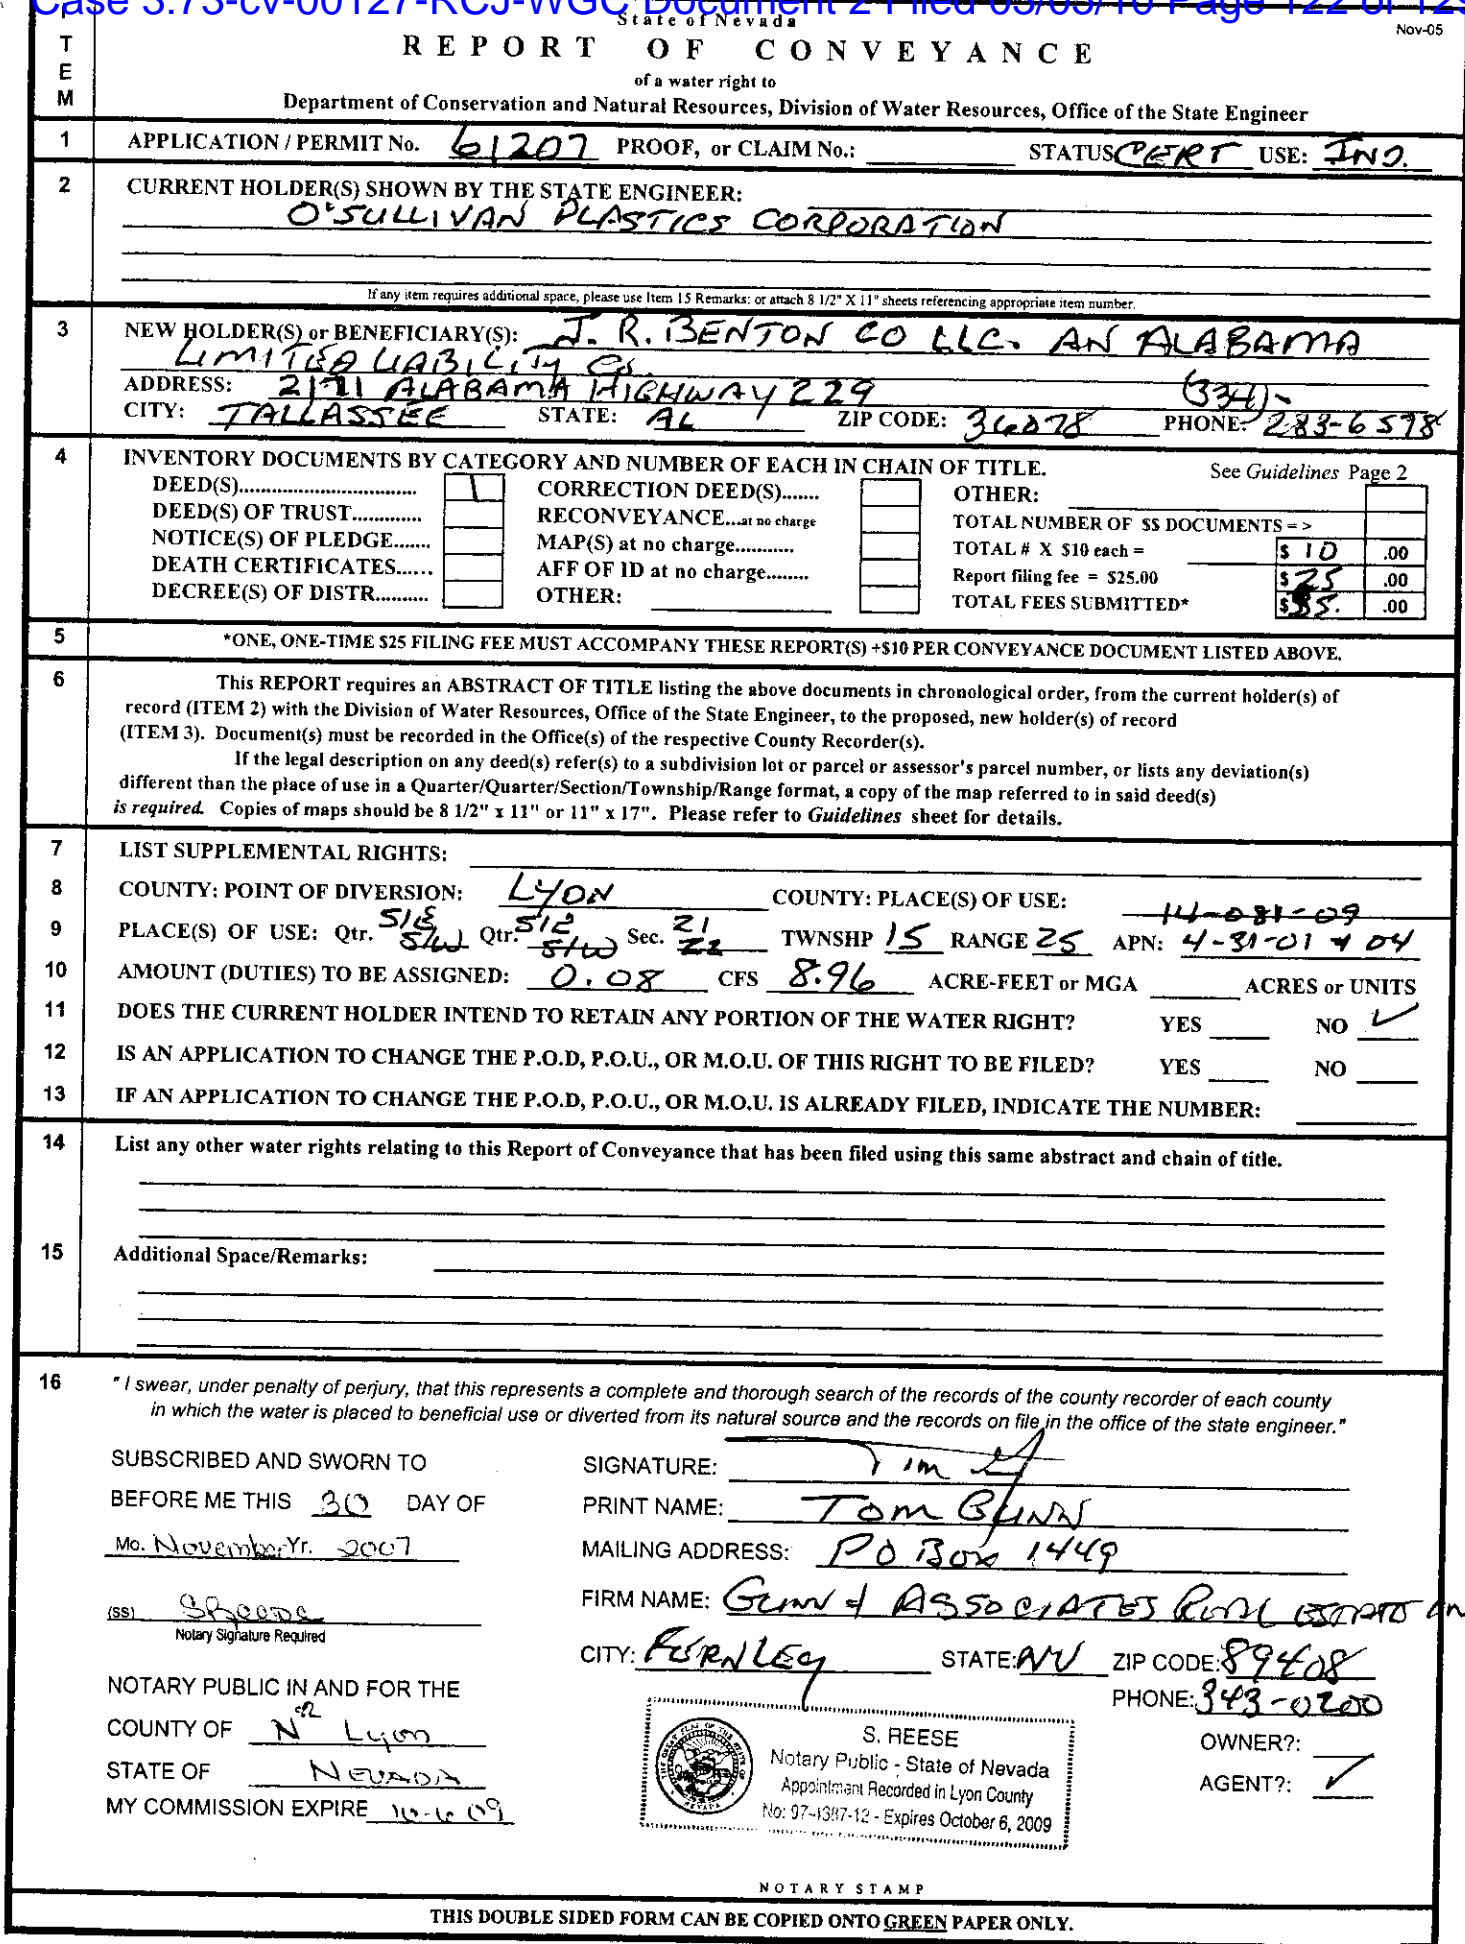 Case 3:73-cv-00127-RCJ-WGC Document 2 Filed 03/03/10 Page 122 of 129
State of Nevada
Nov-05
ITEM
REPORT OF CONVEYANCE
of a water right to
Department of Conservation and Natural Resources, Division of Water Resources, Office of the State Engineer
1 APPLICATION / PERMIT No. 61207 PROOF, or CLAIM No.: STATUS CERT USE: IND.
2 CURRENT HOLDER(S) SHOWN BY THE STATE ENGINEER:
O'SULLIVAN PLASTICS CORPORATION
If any item requires additional space, please use Item 15 Remarks; or attach 8 1/2" X 11" sheets referencing appropriate item number.
3 NEW HOLDER(S) or BENEFICIARY(S): J. R. BENTON CO LLC. AN ALABAMA
LIMITED LIABILITY Co.
ADDRESS: 2171 ALABAMA HIGHWAY 229 (334)-
CITY: TALLASSEE STATE: AL ZIP CODE: 36078 PHONE: 283-6598
4 INVENTORY DOCUMENTS BY CATEGORY AND NUMBER OF EACH IN CHAIN OF TITLE. See Guidelines Page 2
DEED(S)................................ 1 CORRECTION DEED(S)....... OTHER:
DEED(S) OF TRUST............. RECONVEYANCE...at no charge TOTAL NUMBER OF $$ DOCUMENTS = >
NOTICE(S) OF PLEDGE....... MAP(S) at no charge............ TOTAL # X $10 each = $ 10 .00
DEATH CERTIFICATES...... AFF OF ID at no charge........ Report filing fee = $25.00 $ 25 .00
DECREE(S) OF DISTR.......... OTHER: TOTAL FEES SUBMITTED* $ 35. .00
5 *ONE, ONE-TIME $25 FILING FEE MUST ACCOMPANY THESE REPORT(S) +$10 PER CONVEYANCE DOCUMENT LISTED ABOVE.
6 This REPORT requires an ABSTRACT OF TITLE listing the above documents in chronological order, from the current holder(s) of
record (ITEM 2) with the Division of Water Resources, Office of the State Engineer, to the proposed, new holder(s) of record
(ITEM 3). Document(s) must be recorded in the Office(s) of the respective County Recorder(s).
If the legal description on any deed(s) refer(s) to a subdivision lot or parcel or assessor's parcel number, or lists any deviation(s)
different than the place of use in a Quarter/Quarter/Section/Township/Range format, a copy of the map referred to in said deed(s)
is required. Copies of maps should be 8 1/2" x 11" or 11" x 17". Please refer to Guidelines sheet for details.
7 LIST SUPPLEMENTAL RIGHTS:
8 COUNTY: POINT OF DIVERSION: LYON COUNTY: PLACE(S) OF USE:
14-081-09
9 PLACE(S) OF USE: Qtr. S/W Qtr. S/W Sec. 21 22 TWNSHP 15 RANGE 25 APN: 4-31-01 + 04
10 AMOUNT (DUTIES) TO BE ASSIGNED: 0.08 CFS 8.96 ACRE-FEET or MGA ACRES or UNITS
11 DOES THE CURRENT HOLDER INTEND TO RETAIN ANY PORTION OF THE WATER RIGHT? YES NO ✓
12 IS AN APPLICATION TO CHANGE THE P.O.D, P.O.U., OR M.O.U. OF THIS RIGHT TO BE FILED? YES NO
13 IF AN APPLICATION TO CHANGE THE P.O.D, P.O.U., OR M.O.U. IS ALREADY FILED, INDICATE THE NUMBER:
14 List any other water rights relating to this Report of Conveyance that has been filed using this same abstract and chain of title.
15 Additional Space/Remarks:
16 "I swear, under penalty of perjury, that this represents a complete and thorough search of the records of the county recorder of each county
in which the water is placed to beneficial use or diverted from its natural source and the records on file in the office of the state engineer."
SUBSCRIBED AND SWORN TO SIGNATURE:
BEFORE ME THIS 30 DAY OF PRINT NAME: TOM GUNN
Mo. November Yr. 2007 MAILING ADDRESS: PO Box 1449
(SS) SReese FIRM NAME: GUNN & ASSOCIATES REAL ESTATE
Notary Signature Required
CITY: FERNLEY STATE: NV ZIP CODE: 89408
NOTARY PUBLIC IN AND FOR THE PHONE: 343-0200
COUNTY OF Lyon OWNER?:
STATE OF NEVADA AGENT?: ✓
MY COMMISSION EXPIRE 10-6 09
S. REESE
Notary Public - State of Nevada
Appointment Recorded in Lyon County
No: 97-4387-12 - Expires October 6, 2009
NOTARY STAMP
THIS DOUBLE SIDED FORM CAN BE COPIED ONTO GREEN PAPER ONLY.